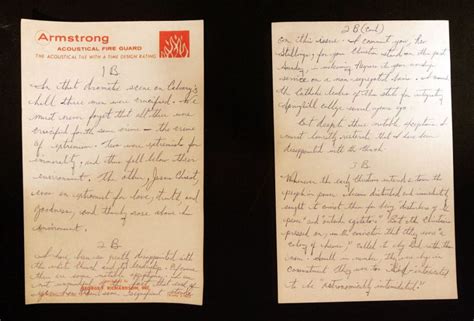 Armstrong
ACOUSTICAL FIRE GUARD
THE ACOUSTICAL TILE WITH A TIME DESIGN RATING
1 B
In that dramatic scene on Calvary's
hill three men were crucified. We
must never forget that all three were
crucified for the same crime — the crime
of extremism. Two were extremists for
immorality, and thus fell below their
environment. The other, Jesus Christ,
was an extremist for love, truth, and
goodness, and thereby rose above his
environment.
2 B
I have been so greatly disappointed with
the white church and its leadership. Of course
there are some notable exceptions.
not
2 B (cont)
on this issue. I commend you, Rev
Stallings, for your Christian stand on this past
Sunday, in welcoming Negroes to your worship
service on a non segregated basis. I commend
the Catholic leaders of this state for integrating
Springhill college several years ago.
But despite these notable exceptions I
must honestly reiterate that I have been
disappointed with the church.
3 B
Whenever the early Christians entered a town the
people in power became disturbed and immediately
sought to convict them for being "disturbers of the
peace" and "outside agitators." But the Christians
pressed on, in the conviction that they were "a
colony of heaven," called to obey God rather than
man. Small in number, they were big in
commitment. They were too God-intoxicated
to be "astronomically intimidated."